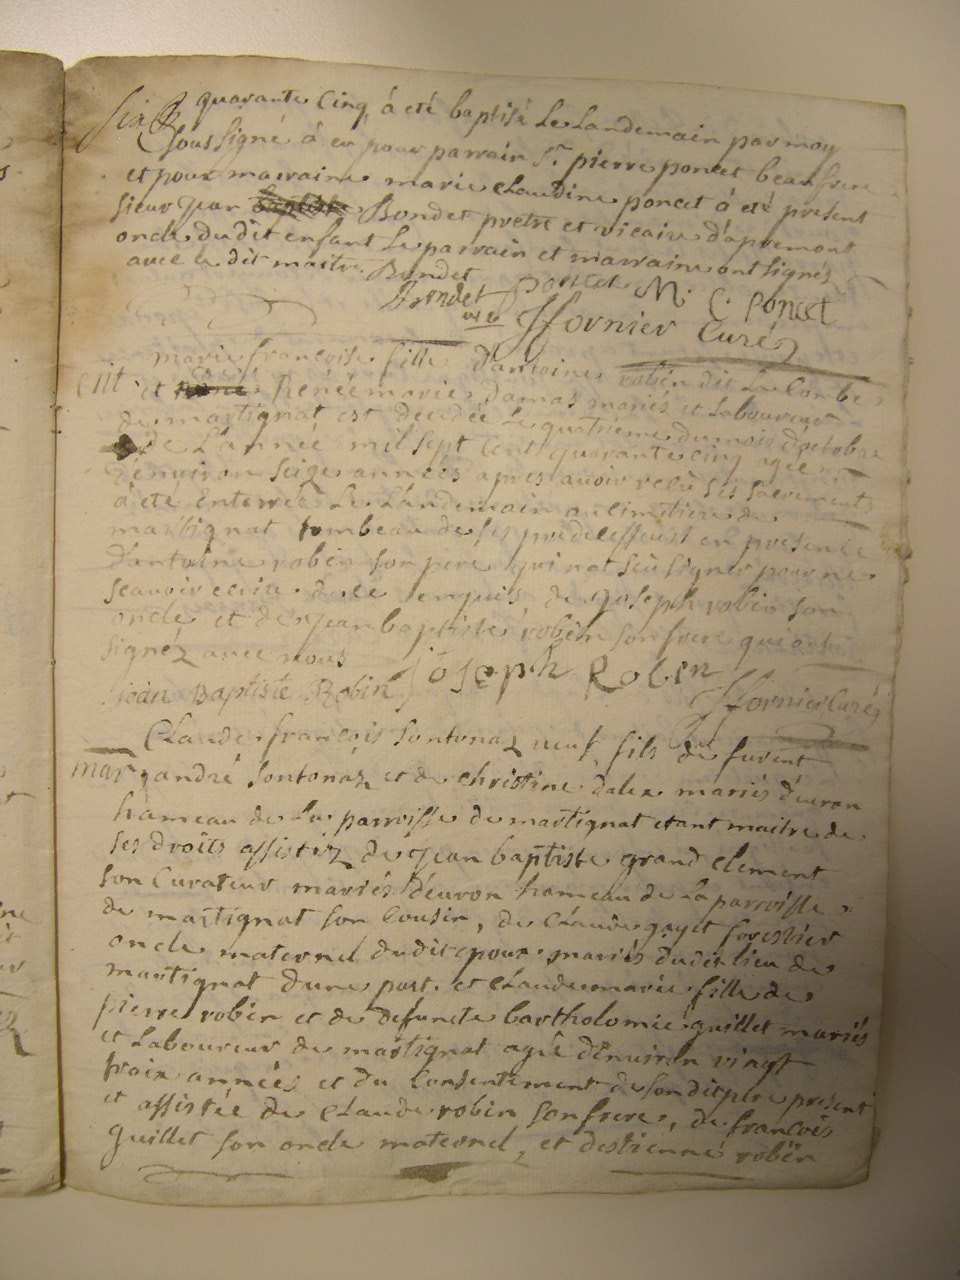 quarante Cinq, à eté baptisé Le Landemain par moy
soussigné à eu pour parrain Sr. pierre poncet beaufrere
et pour marraine marie Claudine poncet à eté present
sieur Jean Bondet pretre et vicaire d'apremont
oncle du dit enfant Le parrain et marraine ont signés
avec le dit maitre Bondet
Bondet poncet M. C. Poncet
vic. ffornier Curé
marie francoise fille d'antoine robin dit La Combe
et Renée marie damas mariés et Laboureur
de martignat est decedée Le quatrieme du mois d'octobre
de L'année mil sept Cent quarante cinq agée
d'environ seize années apres avoir recû ses sacrements
à eté enterrée Le Landemain au cimetiere de
martignat tombeau de ses predecesseurs en presence
d'antoine robin son pere qui n'at sçû signer pour ne
scavoir ecrire de ce enquis de Joseph robin son
oncle et de Jean baptiste robin son frere qui ont
signéz avec nous Joseph Roben
jean Baptiste Robin ffornier Curé
Claude françois sontonaz neuf fils de furent
mar andré sontonaz et de christine dalex mariés d'evron
hameau de La parroisse de martignat etant maitre de
ses droits assistez de Jean baptiste grand clement
son Curateur mariés d'evron hameau de La parroisse
de martignat son Cousin, de Claude gayet forestier
oncle maternel dudit epoux mariés dudit lieu de
martignat d'une part. et Claude marie fille de
pierre robin et de defuncte bartholomiè guillet mariés
et Laboureur de martignat agée d'environ vingt
troix années et du Consentement de son dit pere present
et assistée de Claude robin son frere, de françois
guillet son oncle maternel, et d'estienne robin